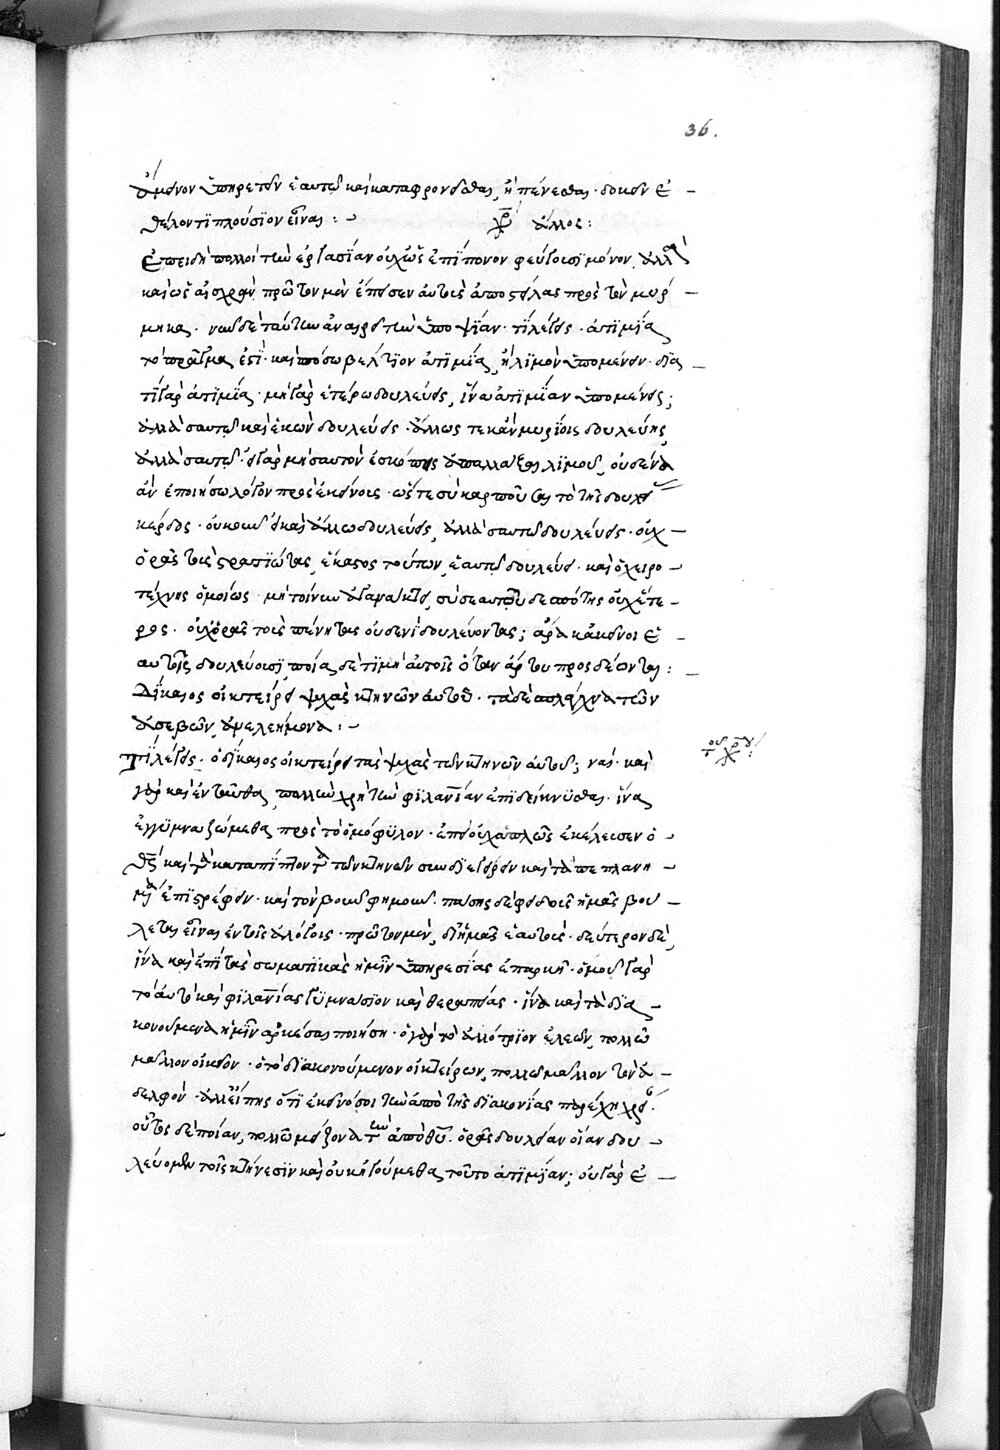 36.
ἄμεινον ὑπηρετεῖν ἑαυτῷ καὶ καταφρονεῖσθαι, ἢ πένεσθαι δοκεῖν ἐ
θέλοντι πλούσιον εἶναι :
χρ ἄλλος :
Ἐπειδὴ πολλοὶ τὴν ἐργασίαν οὐχ ὡς ἐπίπονον φεύγουσι μόνον, ἀλλὰ
καὶ ὡς αἰσχρὰν πρῶτον μὲν ἐπῆσεν αὐτοὺς ἀποστείλας πρὸς τὸν μύρ
μηκα. νῦν δὲ ταύτην ἀναιρεῖ τὴν ὑποψίαν. τί λέγεις. ἀτιμία
τὸ πρᾶγμα ἐστί. καὶ πόσω βέλτιον ἀτιμία, ἢ λιμὸν ὑπομένειν. διὰ
τί γὰρ ἀτιμία. μὴ γὰρ ἑτέρω δουλεύεις, ἵνα ἀτιμίαν ὑπομένεις;
ἀλλὰ σαυτῷ καὶ ἑκὼν δουλεύεις. ἄλλως τε κἂν μυρίοις δουλεύης
ἀλλὰ σαυτῷ. εἰ γὰρ μὴ σαυτὸν ἐσκόπεις ἀπαλλάξαι λιμοῦ, οὐδένα
ἂν ἐποιήσω λόγον πρὸς ἐκείνοις. ὥστε σὺ καρποῦσαι τὸ τῆς δουλεί
κέρδος. οὐκοῦν εἰ καὶ ἄλλω δουλεύεις, ἀλλὰ σαυτῷ δουλεύεις. οὐχ
ὁρᾶς τοὺς στρατιώτας, ἕκαστος τούτων, ἑαυτῷ δουλεύει. καὶ ὁ χειρο
τέχνης ὁμοίως. μὴ τοίνυν ἀγανακτεῖς, σὺ σεαυτοῦ δεσπότης οὐχ ἕτε
ρος. οὐχ ὁρᾶς τοὺς πένητας οὐδενὶ δουλεύοντας; ἆρα κἀκεῖνοι ἑ
αυτοῖς δουλεύουσι, ποία δὲ τιμὴ αὐτοῖς ὅταν ἄρτου προσδέωνται :
Δίκαιος οἰκτείρει ψυχὰς κτηνῶν αὐτοῦ. τὰ δὲ σπλάγχνα τῶν
ἀσεβῶν, ἀνελεήμονα :
Τί λέγεις. ὁ δίκαιος οἰκτείρει τὰς ψυχὰς τῶν κτηνῶν αὐτοῦ; ναί. καὶ
γὰρ καὶ ἐνταῦθα πολλὴν χρὴ τὴν φιλανίαν ἐπιδείκνυσθαι. ἵνα
ἐγγυμναζώμεθα πρὸς τὸ ὁμόφυλον. ἐπεὶ οὐχ ἁπλῶς ἐκέλευσεν ὁ
θς καὶ τὰ καταπίπτοντα τῶν κτηνῶν συνδιεγείρειν καὶ τὰ πεπλανη
μένα ἐπιστρέφειν. καὶ τὸν βοῦν φιμοῦν. πάσης δὲ φειδοῦς ἡμᾶς βού
λεται εἶναι ἐν τοῖς ἀλόγοις. πρῶτον μέν, δι' ἡμᾶς ἑαυτούς. δεύτερον δέ,
ἵνα καὶ ἐπὶ τὰς σωματικὰς ἡμῖν ὑπηρεσίας ἐπαρκῆ. ὁμοῦ γὰρ
τὸ αὐτὸ καὶ φιλανίας γυμνάσιον καὶ θεραπείας. ἵνα καὶ τὰ δια
κονούμενα ἡμῖν ἀρκέσαι ποιήση. ὁ γὰρ τὸ ἀλλότριον ἐλεῶν, πολλῶ
μᾶλλον οἰκεῖον. ὁ τὸ διακονούμενον οἰκτείρων, πολλῶ μᾶλλον τὸν ἀ
δελφόν. ἀλλ' εἴπης ὅτι ἐκεῖνό σοι τὴν ἀπὸ τῆς διακονίας παρέχη χρεί
οὗτος δὲ ποίαν, πολλῶ μείζονα τὴν ἀπὸ θυ. ὁρᾶς δουλείαν οἵαν δου
λεύομεν τοῖς κτήνεσιν καὶ οὐκ ἡγούμεθα τοῦτο ἀτιμίαν; οὐ γὰρ ἐ